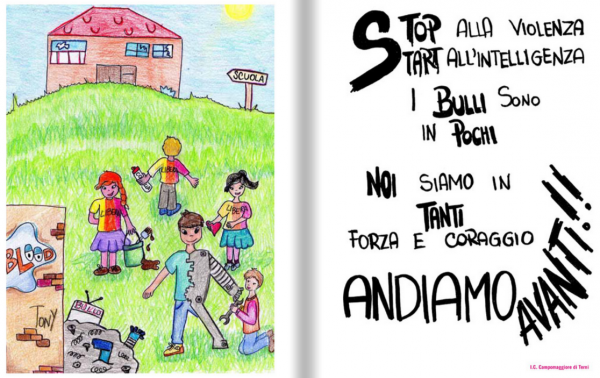 SCUOLA
LIBERA
LIBERA
BLOOD
TONY
STOP ALLA VIOLENZA
START ALL'INTELLIGENZA
I BULLI SONO
IN POCHI
NOI SIAMO IN
TANTI
FORZA E CORAGGIO
ANDIAMO AVANTI!!!
I.C. Campomaggiore di Terni